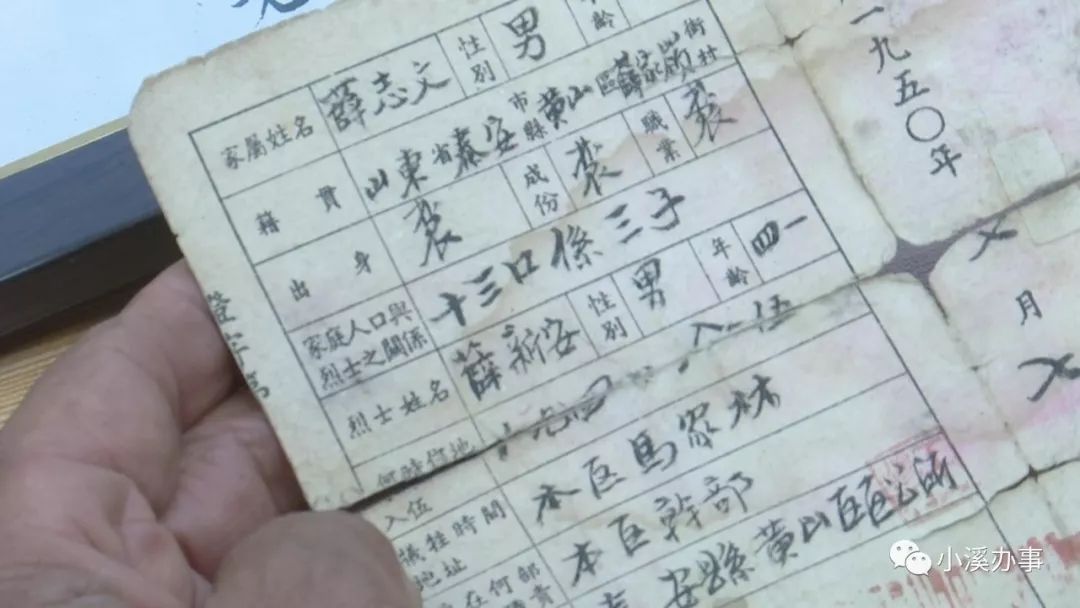 家屬姓名 薛志文 性別 男 年齡
籍貫 山東省泰安市縣黃山區薛家嶺街村
出身 农 成份 农 職業 农
家庭人口與烈士之關係 十三口係三子
烈士姓名 薛新安 性別 男 年齡 四一
何時何地入伍 入伍
犧牲時間地址 本區馬家林
在何部 本區幹部
安縣黃山區區公所
證字第
一九五〇年
月
小溪办事